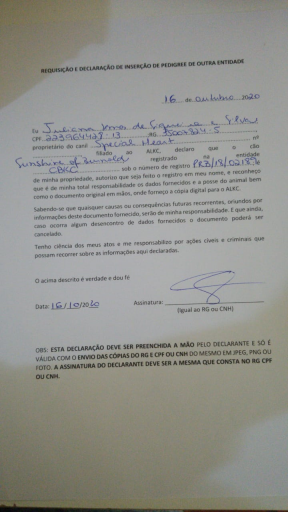 REQUISIÇÃO E DECLARAÇÃO DE INSERÇÃO DE PEDIGREE DE OUTRA ENTIDADE
16 de outubro 2020
Eu Juliana de e Silva
CPF RG
proprietário do canil Special Heart nº
filiado ao ALKC, declaro que o cão
Sunshine of registrado na entidade
CBKC sob o número de registro
de minha propriedade, autorizo que seja feito o registro em meu nome, e reconheço
que é de minha total responsabilidade os dados fornecidos e a posse do animal bem
como o documento original em mãos, onde forneço a cópia digital para o ALKC.
Sabendo-se que quaisquer causas ou consequências futuras recorrentes, oriundos por
informações deste documento fornecido, serão de minha responsabilidade. E que ainda,
caso ocorra algum desencontro de dados fornecidos o documento poderá ser
cancelado.
Tenho ciência dos meus atos e me responsabilizo por ações civeis e criminais que
possam recorrer sobre as informações aqui declaradas.
O acima descrito é verdade e dou fé
Data: 16/10/2020 Assinatura:
(Igual ao RG ou CNH)
OBS: ESTA DECLARAÇÃO DEVE SER PREENCHIDA A MÃO PELO DECLARANTE E SÓ É
VÁLIDA COM O ENVIO DAS CÓPIAS DO RG E CPF OU CNH DO MESMO EM JPEG, PNG OU
FOTO. A ASSINATURA DO DECLARANTE DEVE SER A MESMA QUE CONSTA NO RG CPF
OU CNH.